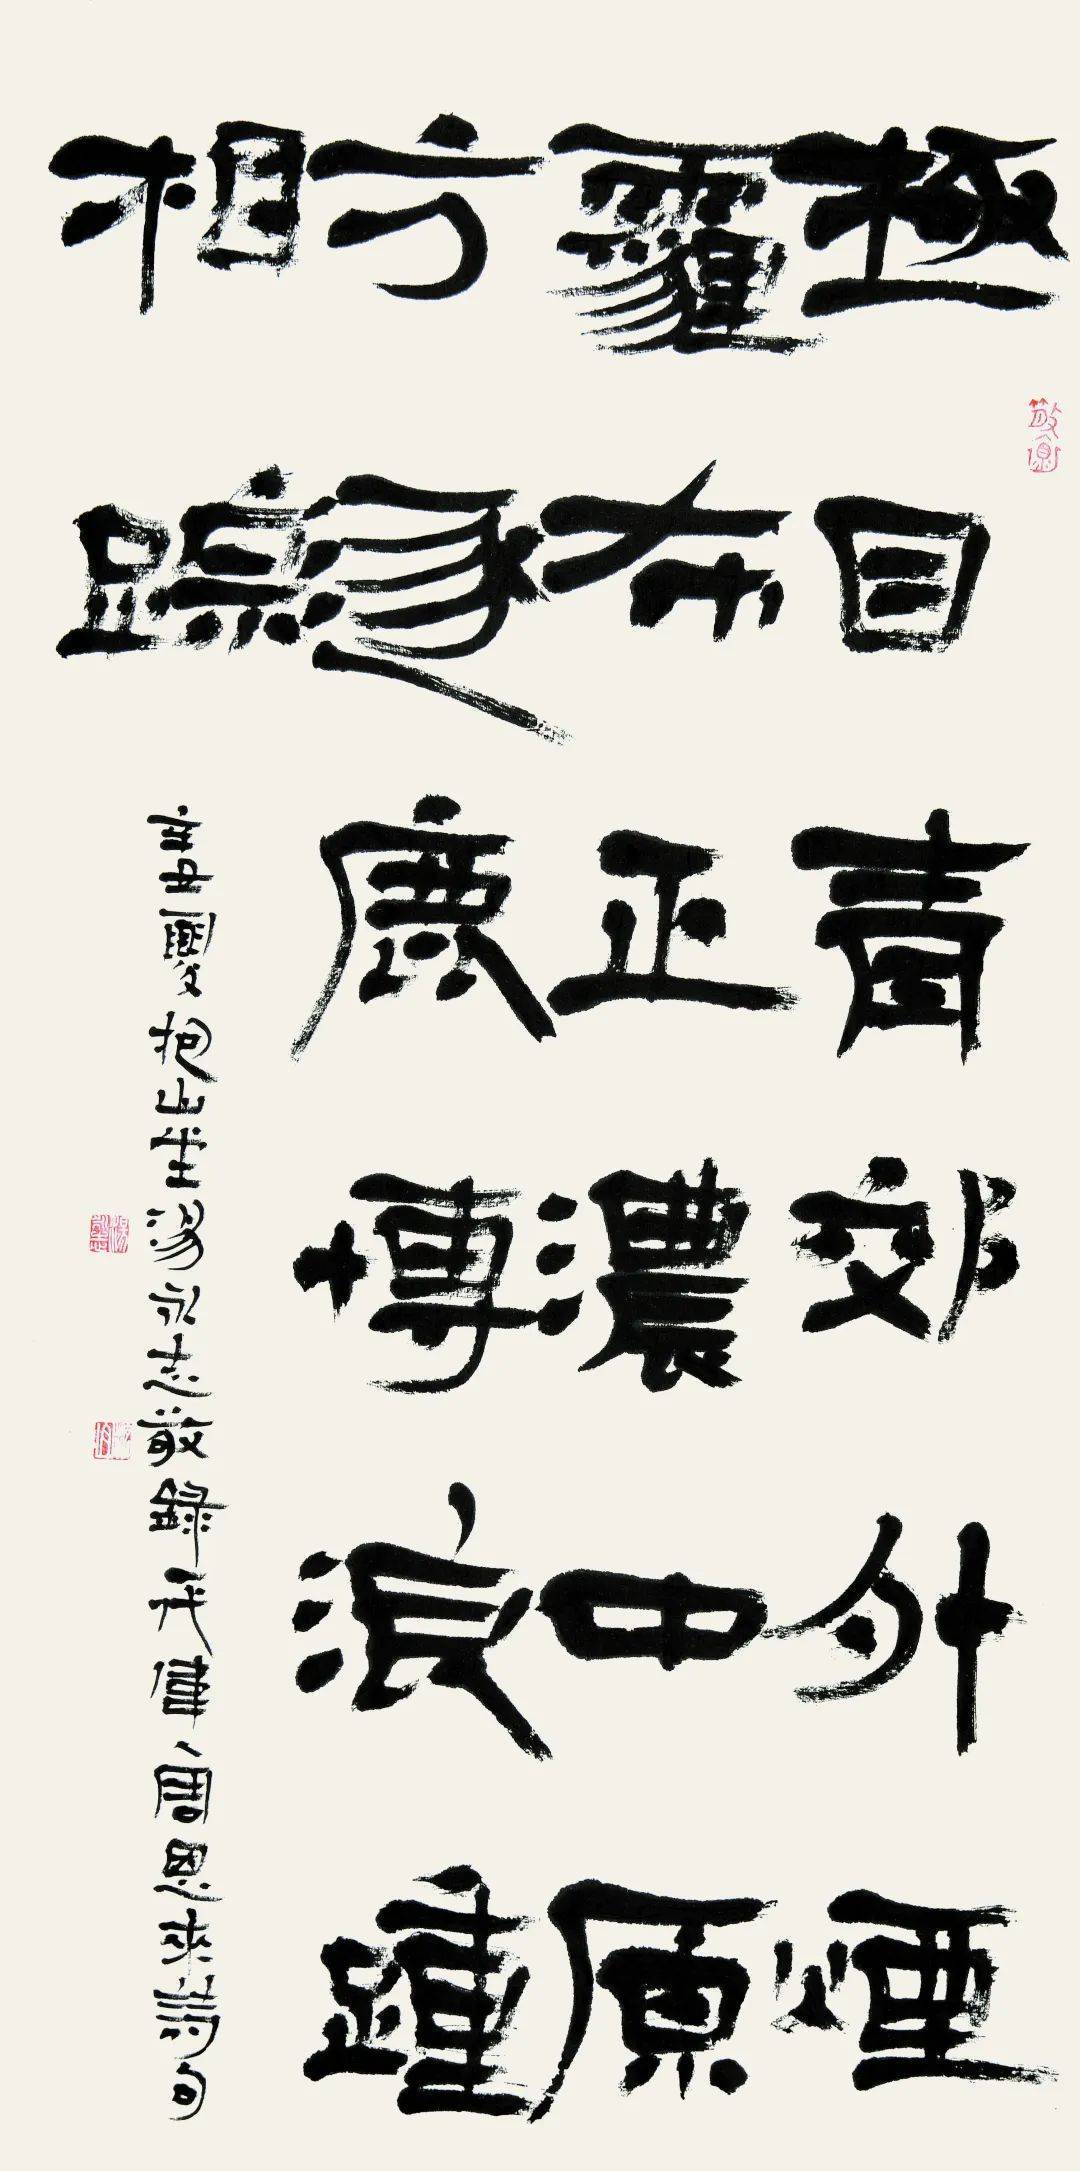 極目青郊外煙
霾布正濃中原
方逐鹿博浪踵
相踪
辛丑夏抱山堂湯永志敬錄一代偉人周恩來詩句